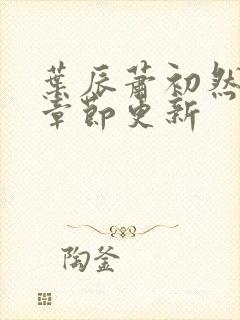 葉辰蕭初然
章節更新
陶釜